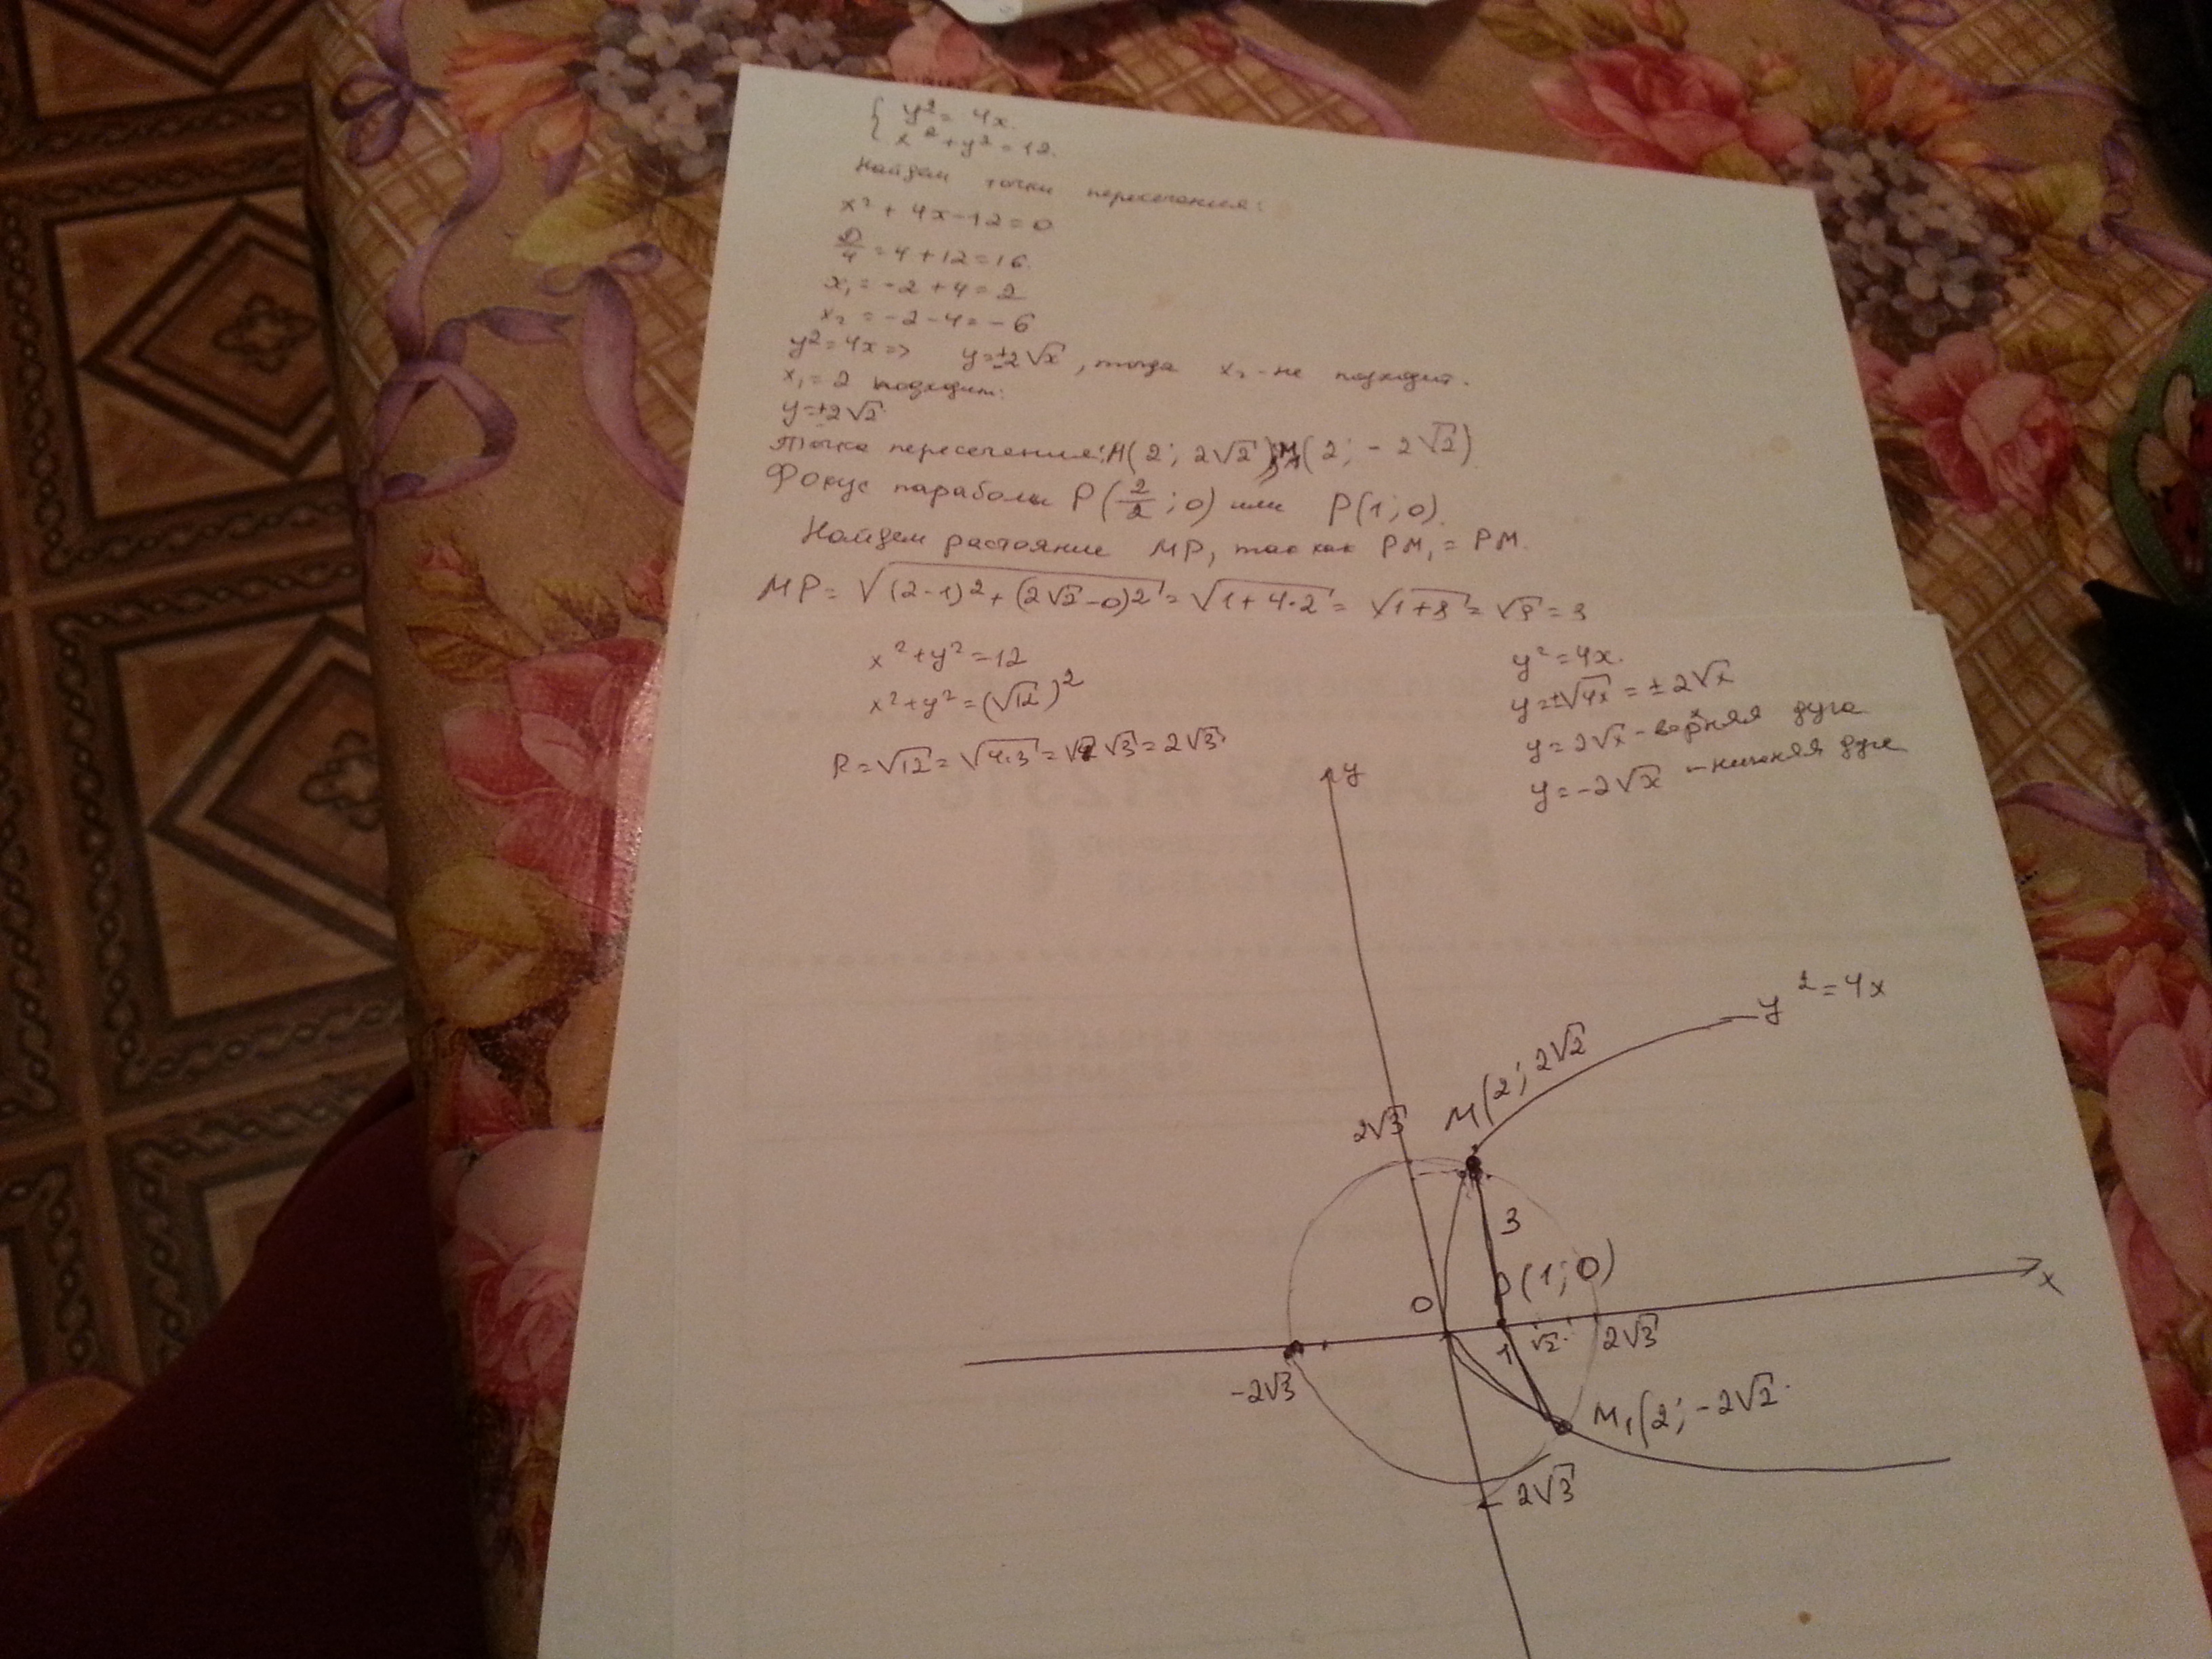 { y² = 4x.
x² + y² = 12.
Найдем точки пересечения:
x² + 4x - 12 = 0
D/4 = 4 + 12 = 16.
x₁ = -2 + 4 = 2
x₂ = -2 - 4 = -6
y² = 4x => y = ±2√x, тогда x₂ - не подходит.
x₁ = 2 подходит:
y = ±2√2
Точка пересечения: М(2; 2√2), М₁(2; -2√2)
Фокус параболы P(2/2; 0) или P(1; 0).
Найдем растояние MP, так как PM₁ = PM.
MP = √((2-1)² + (2√2-0)²) = √(1+4·2) = √(1+8) = √9 = 3
x² + y² = 12
x² + y² = (√12)²
R = √12 = √(4·3) = √4 √3 = 2√3
y² = 4x.
y = ±√4x = ±2√x
y = 2√x - верхняя дуга
y = -2√x - нижняя дуга
y
y² = 4x
M(2; 2√2
2√3
3
P(1; 0)
0
x
1
√2
2√3
-2√3
M₁(2; -2√2
-2√3